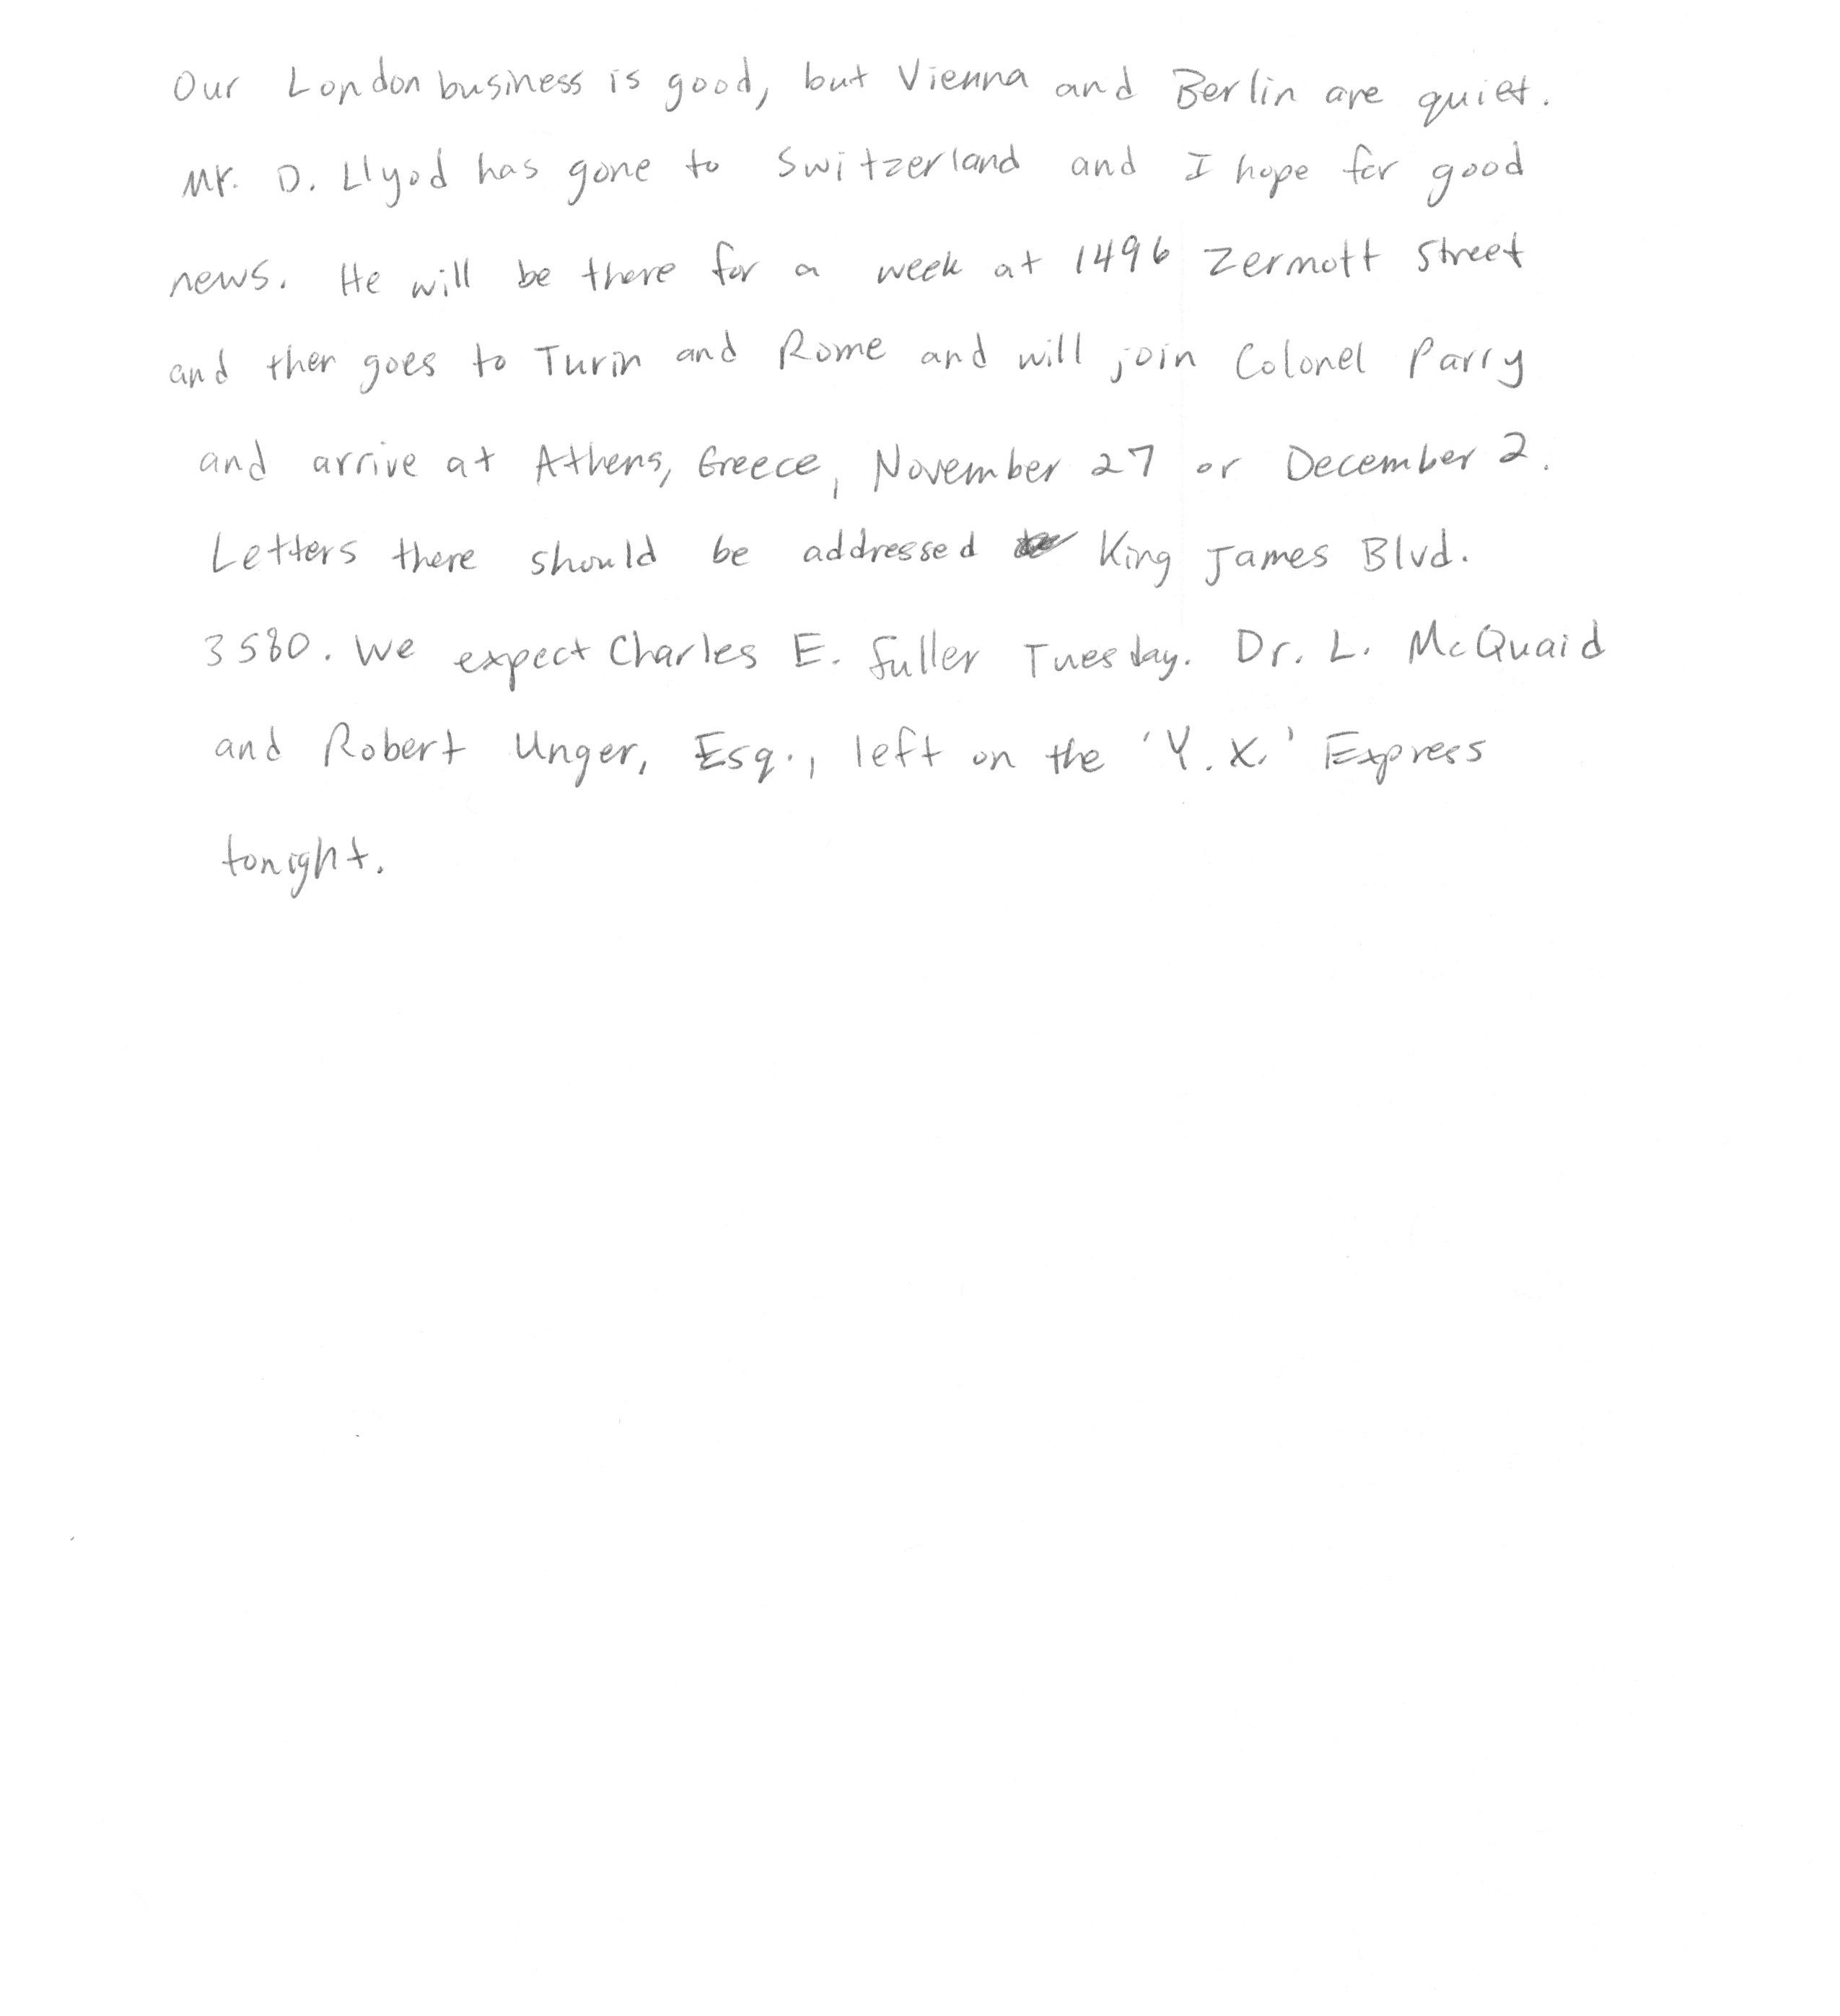 Our London business is good, but Vienna and Berlin are quiet.
Mr. D. Llyod has gone to Switzerland and I hope for good
news. He will be there for a week at 1496 Zermott Street
and then goes to Turin and Rome and will join Colonel Parry
and arrive at Athens, Greece, November 27 or December 2.
Letters there should be addressed King James Blvd.
3580. We expect Charles E. Fuller Tuesday. Dr. L. McQuaid
and Robert Unger, Esq., left on the 'Y. X.' Express
tonight.